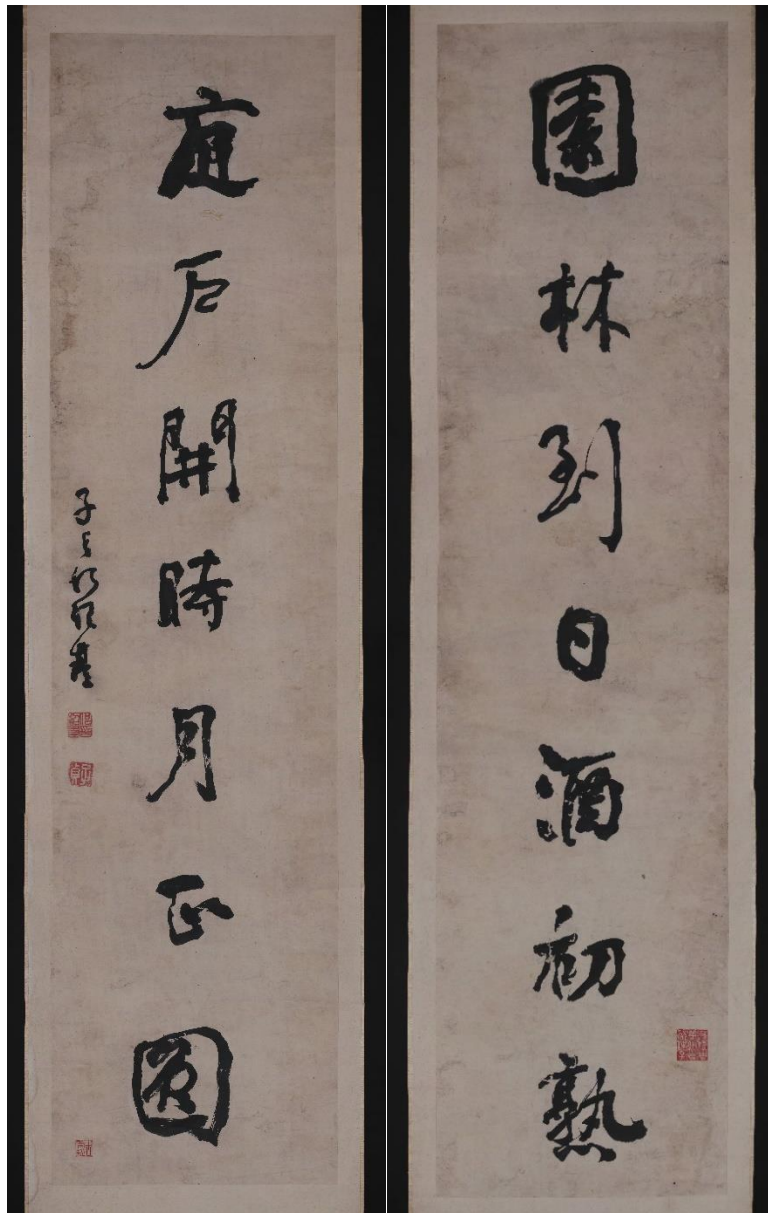 園林到日酒初熟
庭戶開時月正圓
子貞何紹基